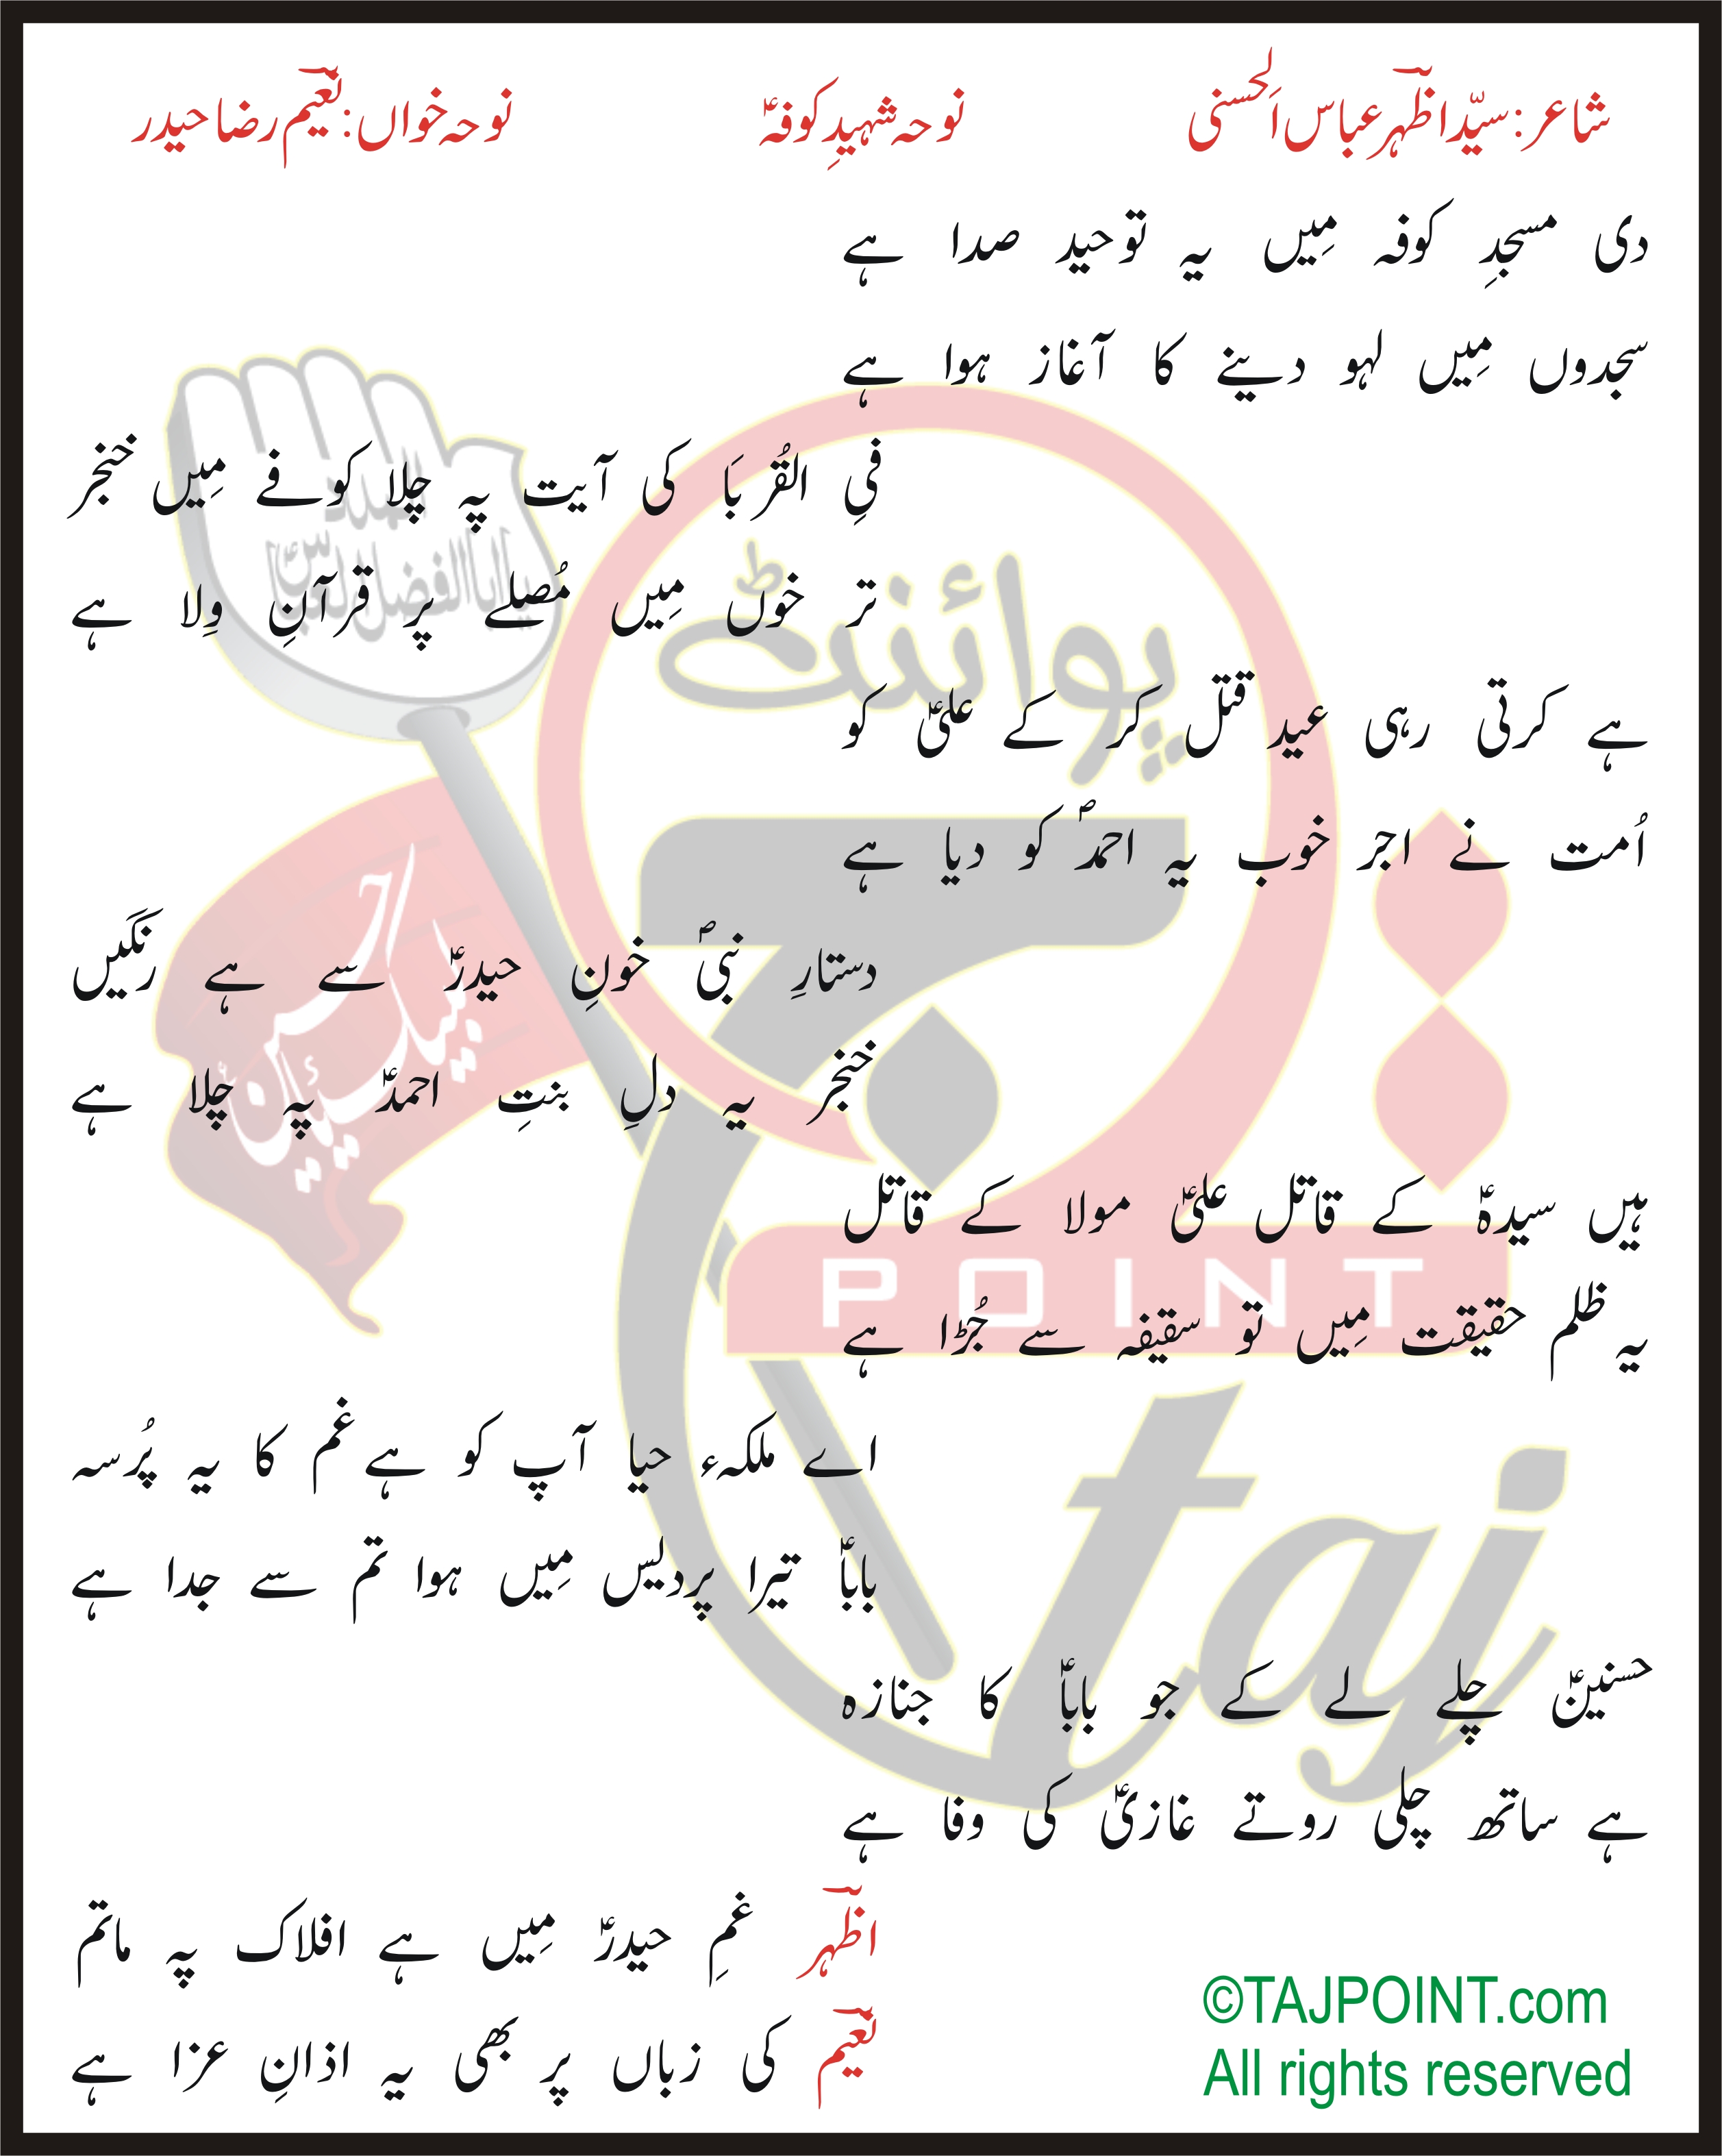 شاعر: سیّد اظہرؔ عباس اَلحسنی نوحہ شہیدِ کوفہؑ نوحہ خواں: نعیمؔ رضا حیدر
دی مسجدِ کوفہ مِیں یہ توحید صدا ہے
سجدوں مِیں لہو دینے کا آغاز ہوا ہے
فیِ القُربَا کی آیت پہ چلا کوفے مِیں خنجر
تر خوں مِیں مُصلے پر قرآنِ وِلا ہے
ہے کرتی رہی عید قتل کر کے علیؑ کو
اُمت نے اجر خوب یہ احمدؐ کو دیا ہے
دستارِ نبیؐ خونِ حیدرؑ سے ہے رنگیں
خنجر یہ دلِ بنتِ احمدؑ پہ چلا ہے
ہیں سیدہؑ کے قاتل علیؑ مولا کے قاتل
یہ ظلم حقیقت مِیں تو سقیفہ سے جُڑا ہے
اے ملکہء حیا آپ کو ہے غم کا یہ پُرسہ
باباؑ تیرا پردیس مِیں ہوا تم سے جدا ہے
حسنینؑ چلے لے کے جو باباؑ کا جنازہ
ہے ساتھ چلی روتے غازیؑ کی وفا ہے
اظہرؔ غمِ حیدرؑ مِیں ہے افلاک پہ ماتم
نعیمؔ کی زباں پر بھی یہ اذانِ عزا ہے
©TAJPOINT.com
All rights reserved
پوائنٹ
تاج
POINT
taj
یا ابا الفضل العباسؑ
لبیک یا حسینؑ